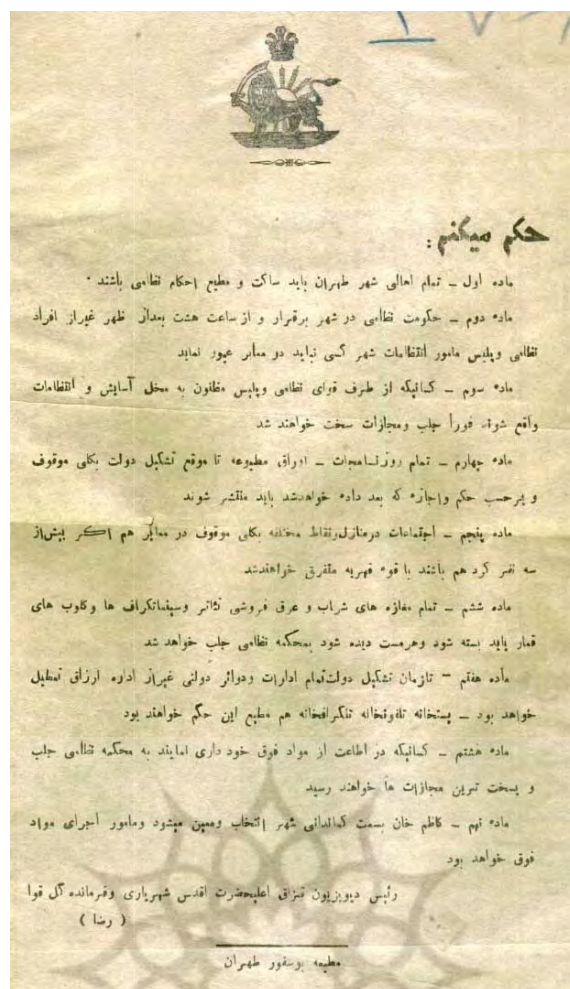 حکم میکنم :
ماده اول ــ تمام اهالی شهر طهران باید ساکت و مطیع احکام نظامی باشند ·
ماده دوم ــ حکومت نظامی در شهر برقرار و از ساعت هشت بعداز ظهر غیراز افراد
نظامی وپلیس مامور انتظامات شهر کسی نباید در معابر عبور نماید
ماده سوم ــ کسانیکه از طرف قوای نظامی وپلیس مظنون به مخل آسایش و انتظامات
واقع شوند فوراً جلب ومجازات سخت خواهند شد
ماده چهارم ــ تمام روزنامجات ــ اوراق مطبوعه تا موقع تشکیل دولت بکلی موقوف
و برحسب حکم واجازه که بعد داده خواهدشد باید منتشر شوند
ماده پنجم ــ اجتماعات درمنازل ونقاط مختلفه بکلی موقوف در معابر هم اگر بیش‌از
سه نفر گرد هم باشند با قوه قهریه متفرق خواهندشد
ماده ششم ــ تمام مغازه های شراب و عرق فروشی تئاتر وسینماتکراف ها وکلوب های
قمار باید بسته شود وهرمست دیده شود بمحکمه نظامی جلب خواهد شد
ماده هفتم ــ تازمان تشکیل دولت تمام ادارات ودوائر دولتی غیراز اداره ارزاق تعطیل
خواهد بود ــ پستخانه تلفونخانه تلگرافخانه هم مطیع این حکم خواهند بود
ماده هشتم ــ کسانیکه در اطاعت از مواد فوق خود داری نمایند به محکمه نظامی جلب
و بسخت ترین مجازات ها خواهند رسید
ماده نهم ــ کاظم خان بسمت کماندانی شهر انتخاب ومعین میشود ومامور اجرای مواد
فوق خواهد بود
رئیس دیویزیون قزاق اعلیحضرت اقدس شهریاری وفرمانده کل قوا
( رضا )
مطبعه بوسفور طهران